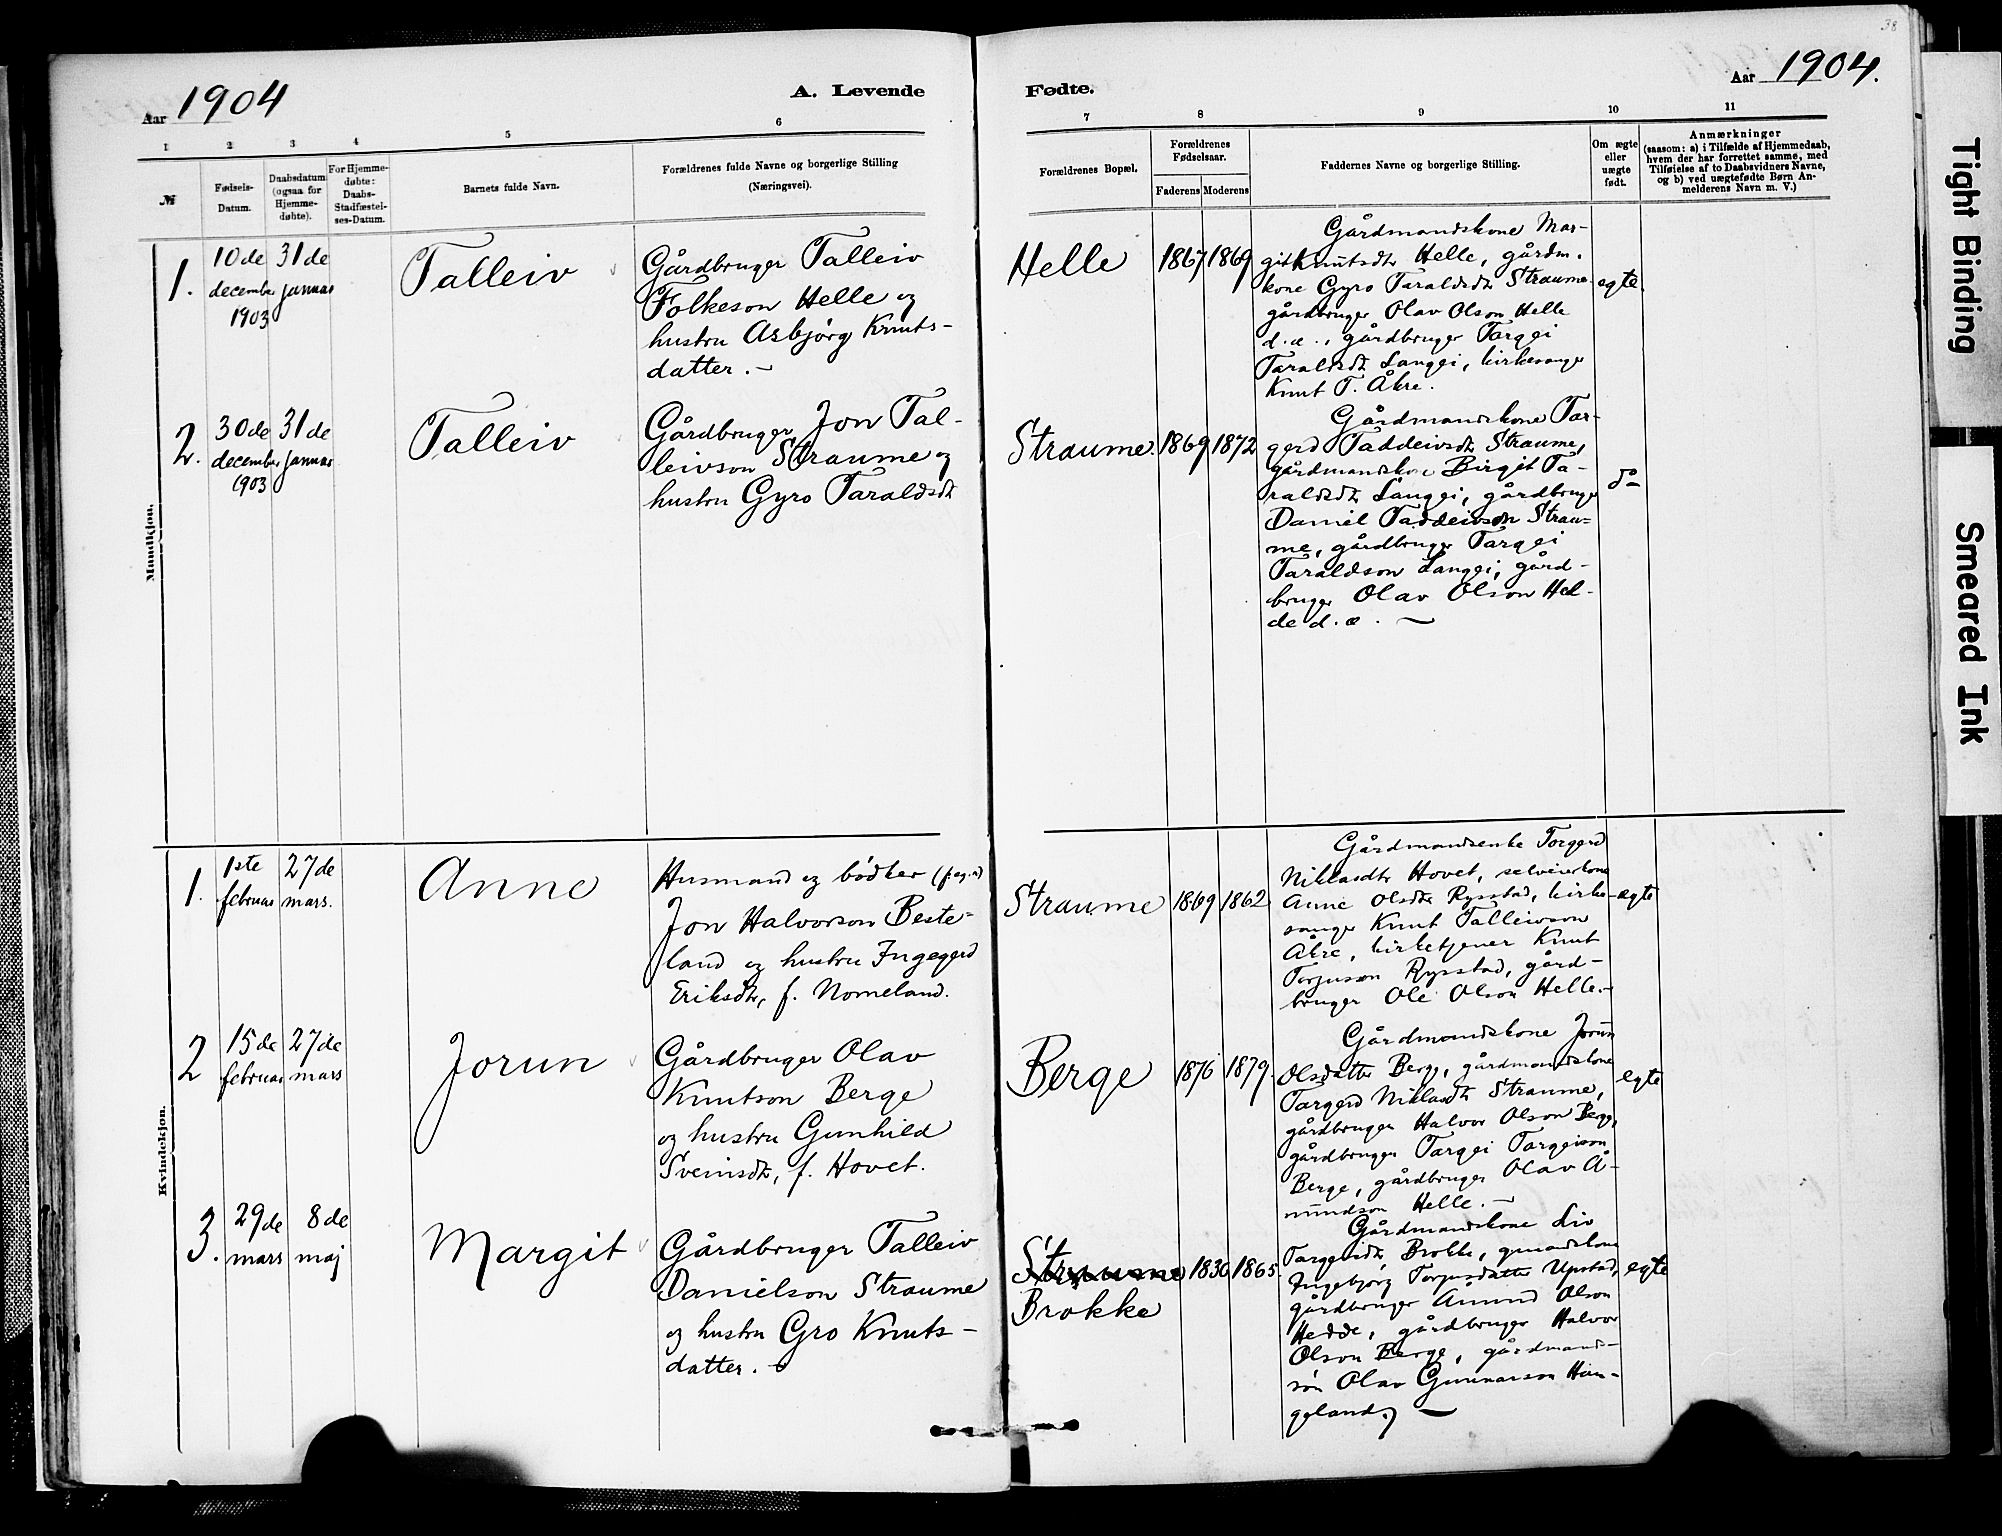 38
Aar 1904
A. Levende
Fødte.
Aar 1904.
1 2 3 4 5 6
7 8 9 10 11
№
Fødsels-
Datum.
Daabsdatum
(ogsaa for
Hjemme-
døbte).
For Hjemme-
døbte:
Daabs-
Stadfæstel-
ses-Datum.
Barnets fulde Navn.
Forældrenes fulde Navne og borgerlige Stilling
(Næringsvei).
Forældrenes Bopæl.
Forældrenes
Fødselsaar.
Faderens Moderens
Faddernes Navne og borgerlige Stilling.
Om ægte
eller
uægte
født.
Anmærkninger
(saasom: a) i Tilfælde af Hjemmedaab,
hvem der har forrettet samme, med
Tilføielse af to Daabsvidners Navne,
og b) ved uægtefødte Børn An-
melderens Navn m. V.)
Mandkjøn.
1.
10de
december
1903
31de
januar
Talleiv
Gårdbruger Talleiv
Folkeson Helle og
hustru Asbjørg Knuts-
datter. –
Helle
1867 1869
Gårdmandskone Mar-
git Knutsdtr Helle, gårdm.
kone Gyro Taraldsdtr Straume
gårdbruger Olav Olson Helle
d.æ., gårdbruger Targei
Taraldsdtr Langei, kirkesanger
Knut T. Åkre.
egte.
2.
30de
december
1903
31de
januar
Talleiv
Gårdbruger Jon Tal-
leivson Straume og
hustru Gyro Taraldsdtr
Straume.
1869 1872
Gårdmandskone Tar-
gerd Taddeivsdtr Straume,
gårdmandskone Birgit Ta-
raldsdtr Langei, gårdbruger
Daniel Taddeivson Strau-
me, gårdbruger Targei
Taraldson Langei, gård-
bruger Olav Olson Hel-
de d.æ. –
do
Kvindekjøn.
1.
1ste
februar
27de
mars.
Anne
Husmand og bødker
Jon Halvorson Beste-
land og hustru Ingegerd
Eriksdtr, f. Nomeland.
Straume
1869 1862
Gårdmandsenke Torgerd
Niklasdtr Hovet, selveierkone
Anne Olsdtr Rysstad, kirke-
sanger Knut Talleivson
Åkre, kirketjener Knut
Torjuson Rysstad, gård-
bruger Ole Olson Helle. –
egte
2
15de
februar
27de
mars
Jorun
Gårdbruger Olav
Knutson Berge
og hustru Gunhild
Sveinsdtr, f. Hovet.
Berge
1876 1879.
Gårdmandskone Jorun
Olsdatter Berg, gårdmandskone
Targerd Niklasdtr Straume,
gårdbruger Halvor Olson Berg,
gårdbruger Targei Targeison
Berge, gårdbruger Olav Å-
mundson Helle. –
egte
3.
29de
mars
8de
maj
Margit
Gårdbruger Talleiv
Danielson Straume
og hustru Gro Knuts-
datter. –
Straume
Brokke
1836 1865.
Gårdmandskone Liv
Targeisdtr Brokke, gmandskone
Ingebjørg Torjusdatter Upstad,
gårdbruger Åmund Olson
Hedde, gårdbruger Halvor
Olson Berge, gårdmands-
søn Olav Gunnarson Han-
geland. –
egte
Tight Binding
Smeared Ink